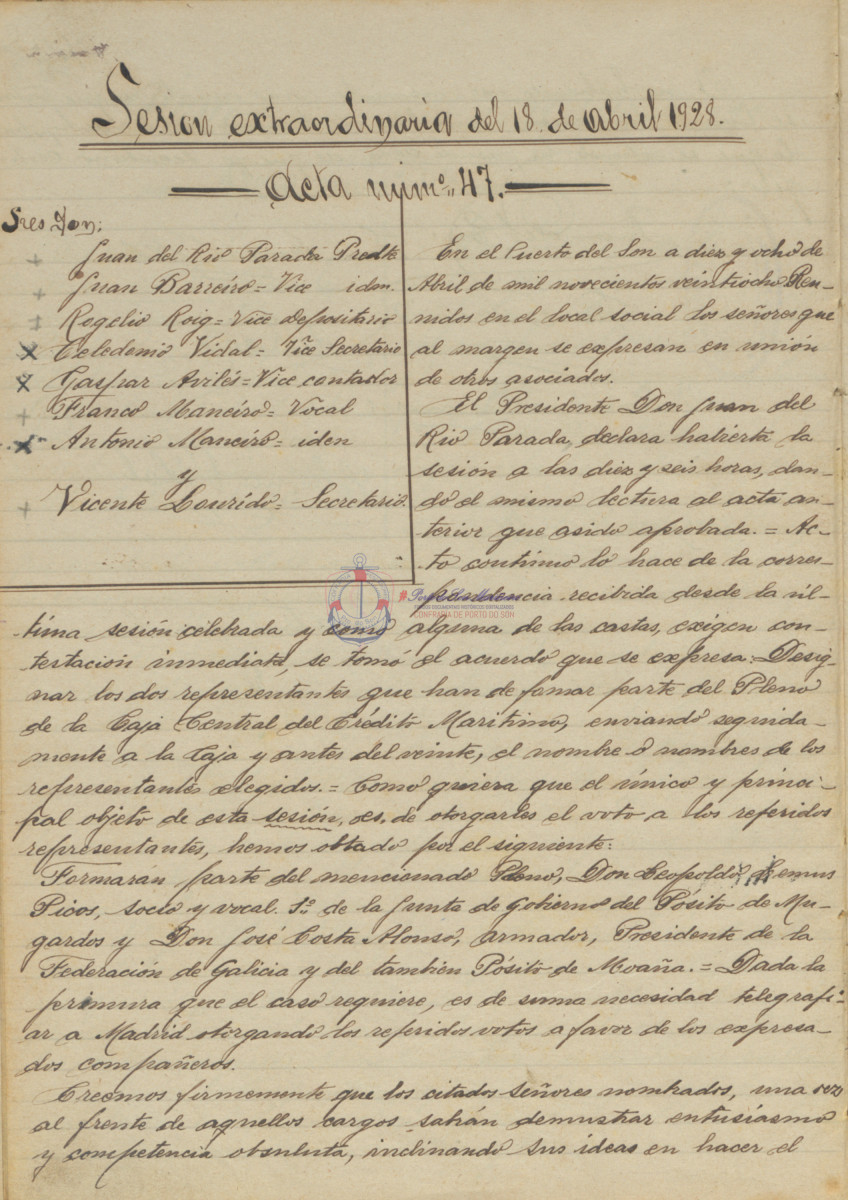 Sesion extraordinaria del 18 de abril 1928.
Acta núm.º 47.
Sres Don:
Juan del Rio Parada Prendte
Juan Barreiro = Vice iden.
Rogelio Roig = Vice depositario
Celedonio Vidal = Vice Secretario
Gaspar Avilés = Vice contador
Franco Maneiro = Vocal
Antonio Maneiro = iden
y
Vicente Lourido = Secretario.
En el Puerto del Son a diez y ocho de
Abril de mil novecientos veintiocho Reu-
nidos en el local social los señores que
al margen se expresan en unión
de otros asociados.
El Presidente Don Juan del
Rio Parada, declara habierta la
sesión a las diez y seis horas, dan-
do el mismo lectura al acta an-
terior que asido aprobada. = Ac-
to contínuo lo hace de la corres-
pondencia recibida desde la úl-
tima sesión celebrada y como alguna de las cartas, exigen con-
testación inmediata, se tomó el acuerdo que se expresa: Desig-
nar los dos representantes que han de fomar parte del Pleno
de la Caja Central del Crédito Maritimo, enviando seguida-
mente a la Caja y antes del veinte, el nombre o nombres de los
representantes elegidos. = Como quiera que el único y princi-
pal objeto de esta sesión, es. de otorgarles el voto a los referidos
representantes, hemos obtado por el siguiente:
Formarán parte del mencionado Pleno, Don Leopoldo Lemus
Picos, socio y vocal 1.º de la Junta de Gobierno del Pósito de Mu-
gardos y Don José Costa Alonso, armador, Presidente de la
Federación de Galicia y del tambien Pósito de Moaña. = Dada la
perimura que el caso requiere, es de suma necesidad telegrafi-
ar a Madrid otorgando los referidos votos a favor de los expresa-
dos compañeros.
Creemos firmemente que los citados señores nombrados, una vez
al frente de aquellos cargos sabrán demustrar entusiasmo
y competencia absuluta, inclinando sus ideas en hacer el
CONFRARÍA DE PORTO DO SON